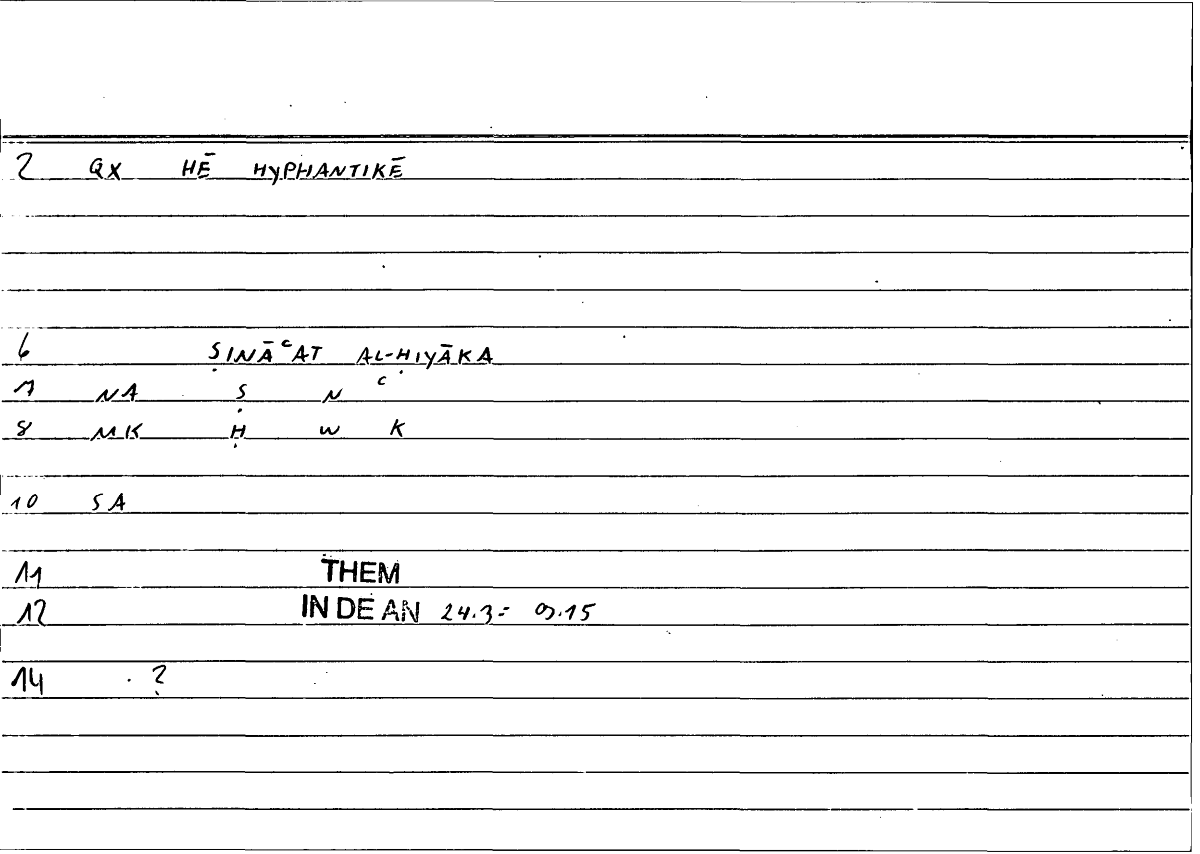 2 QX HĒ HYPHANTIKĒ
6 ṢINĀʿAT AL-ḤIYĀKA
7 NA Ṣ N ʿ
8 MK Ḥ W K
10 SA
11 THEM
12 IN DE AN 24.3 = 09.15
14 ?